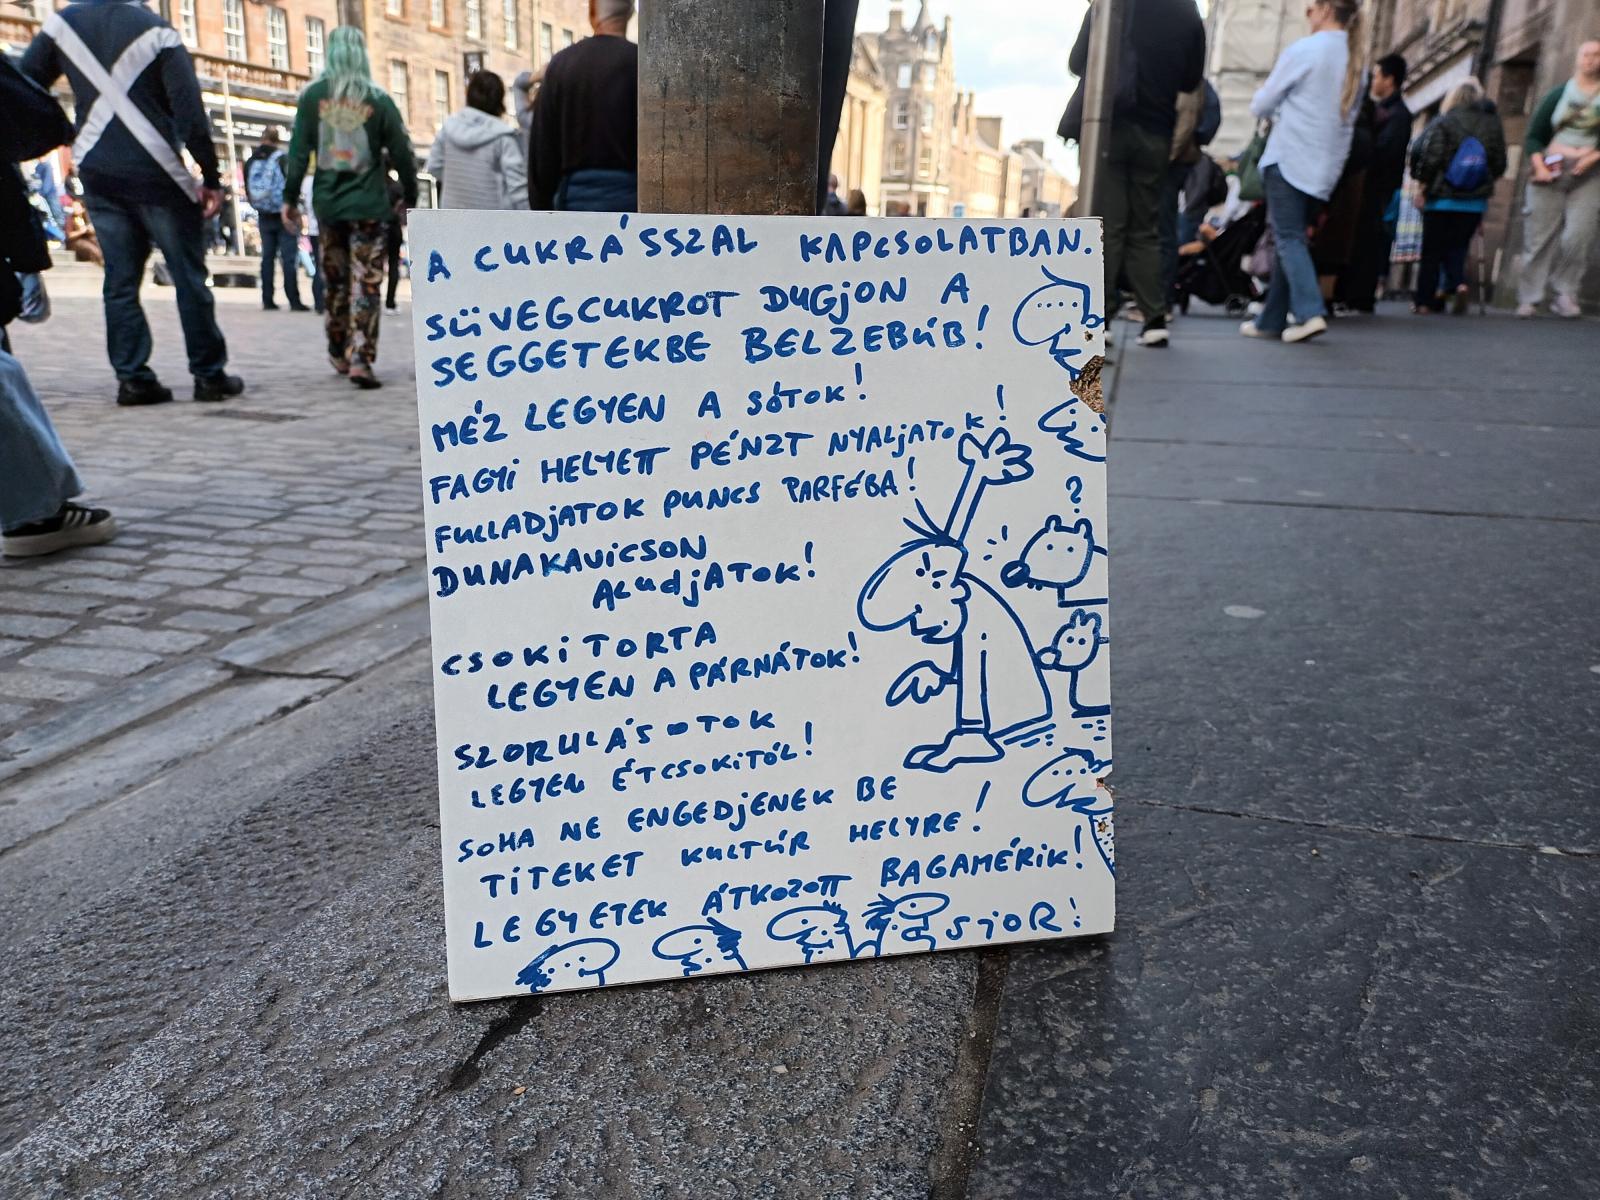 A CUKRÁSSZAL KAPCSOLATBAN.
SÜVEGCUKROT DUGJON A
SEGGETEKBE BELZEBÚB!
MÉZ LEGYEN A SÓTOK!
FAGYI HELYETT PÉNZT NYALJATOK!
FULLADJATOK PUNCS PARFÉBA!
DUNAKAVICSON
ALUDJATOK!
CSOKITORTA
LEGYEN A PÁRNÁTOK!
SZORULÁSOTOK
LEGYEN ÉTCSOKITÓL!
SOHA NE ENGEDJENEK BE
TITEKET KULTÚR HELYRE!
LEGYETEK ÁTKOZOTT BAGAMÉRIK!
SJOR!
?